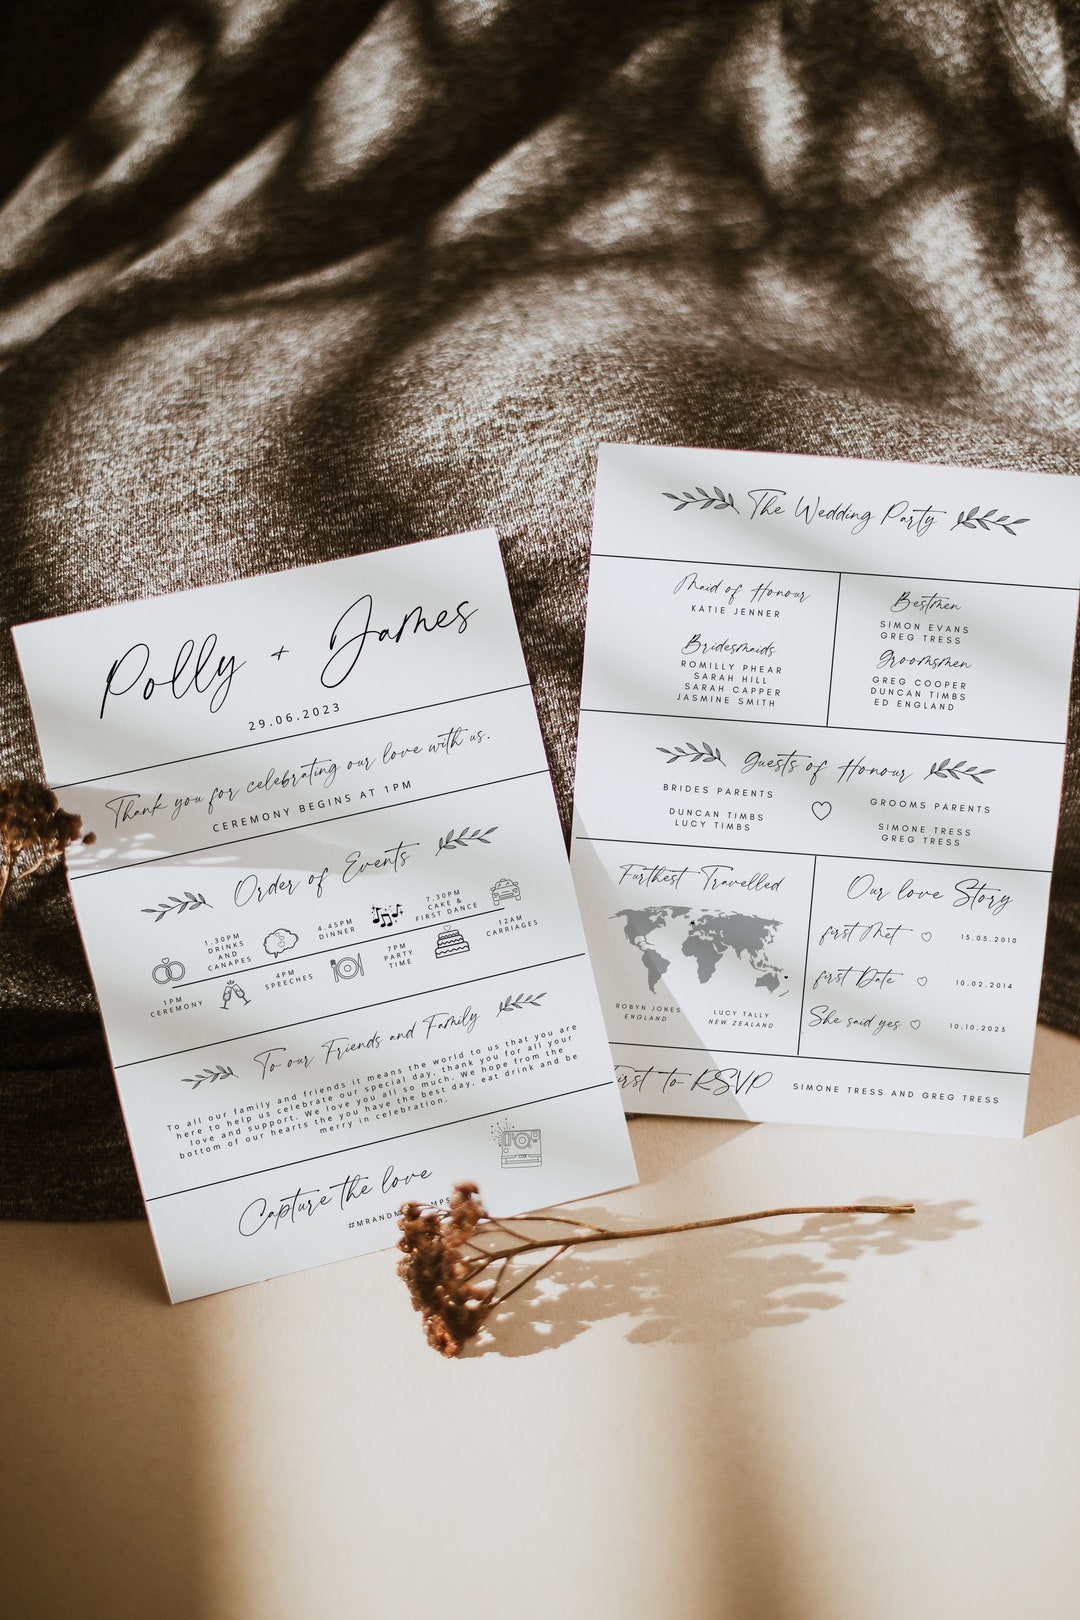 Polly + James
29.06.2023
Thank you for celebrating our love with us.
CEREMONY BEGINS AT 1PM
Order of Events
1PM
CEREMONY
1.30PM
DRINKS
AND
CANAPES
4PM
SPEECHES
4.45PM
DINNER
7PM
PARTY
TIME
7.30PM
CAKE &
FIRST DANCE
12AM
CARRIAGES
To our Friends and Family
To all our family and friends it means the world to us that you are
here to help us celebrate our special day, thank you for all your
love and support. We love you all so much. We hope from the
bottom of our hearts the you have the best day, eat drink and be
merry in celebration.
Capture the love
The Wedding Party
Maid of Honour
KATIE JENNER
Bridesmaids
ROMILLY PHEAR
SARAH HILL
SARAH CAPPER
JASMINE SMITH
Bestmen
SIMON EVANS
GREG TRESS
Groomsmen
GREG COOPER
DUNCAN TIMBS
ED ENGLAND
Guests of Honour
BRIDES PARENTS
DUNCAN TIMBS
LUCY TIMBS
GROOMS PARENTS
SIMONE TRESS
GREG TRESS
Furthest Travelled
ROBYN JONES
ENGLAND
LUCY TALLY
NEW ZEALAND
Our love Story
first Met 15.05.2010
first Date 10.02.2014
She said yes 10.10.2025
first to RSVP SIMONE TRESS AND GREG TRESS